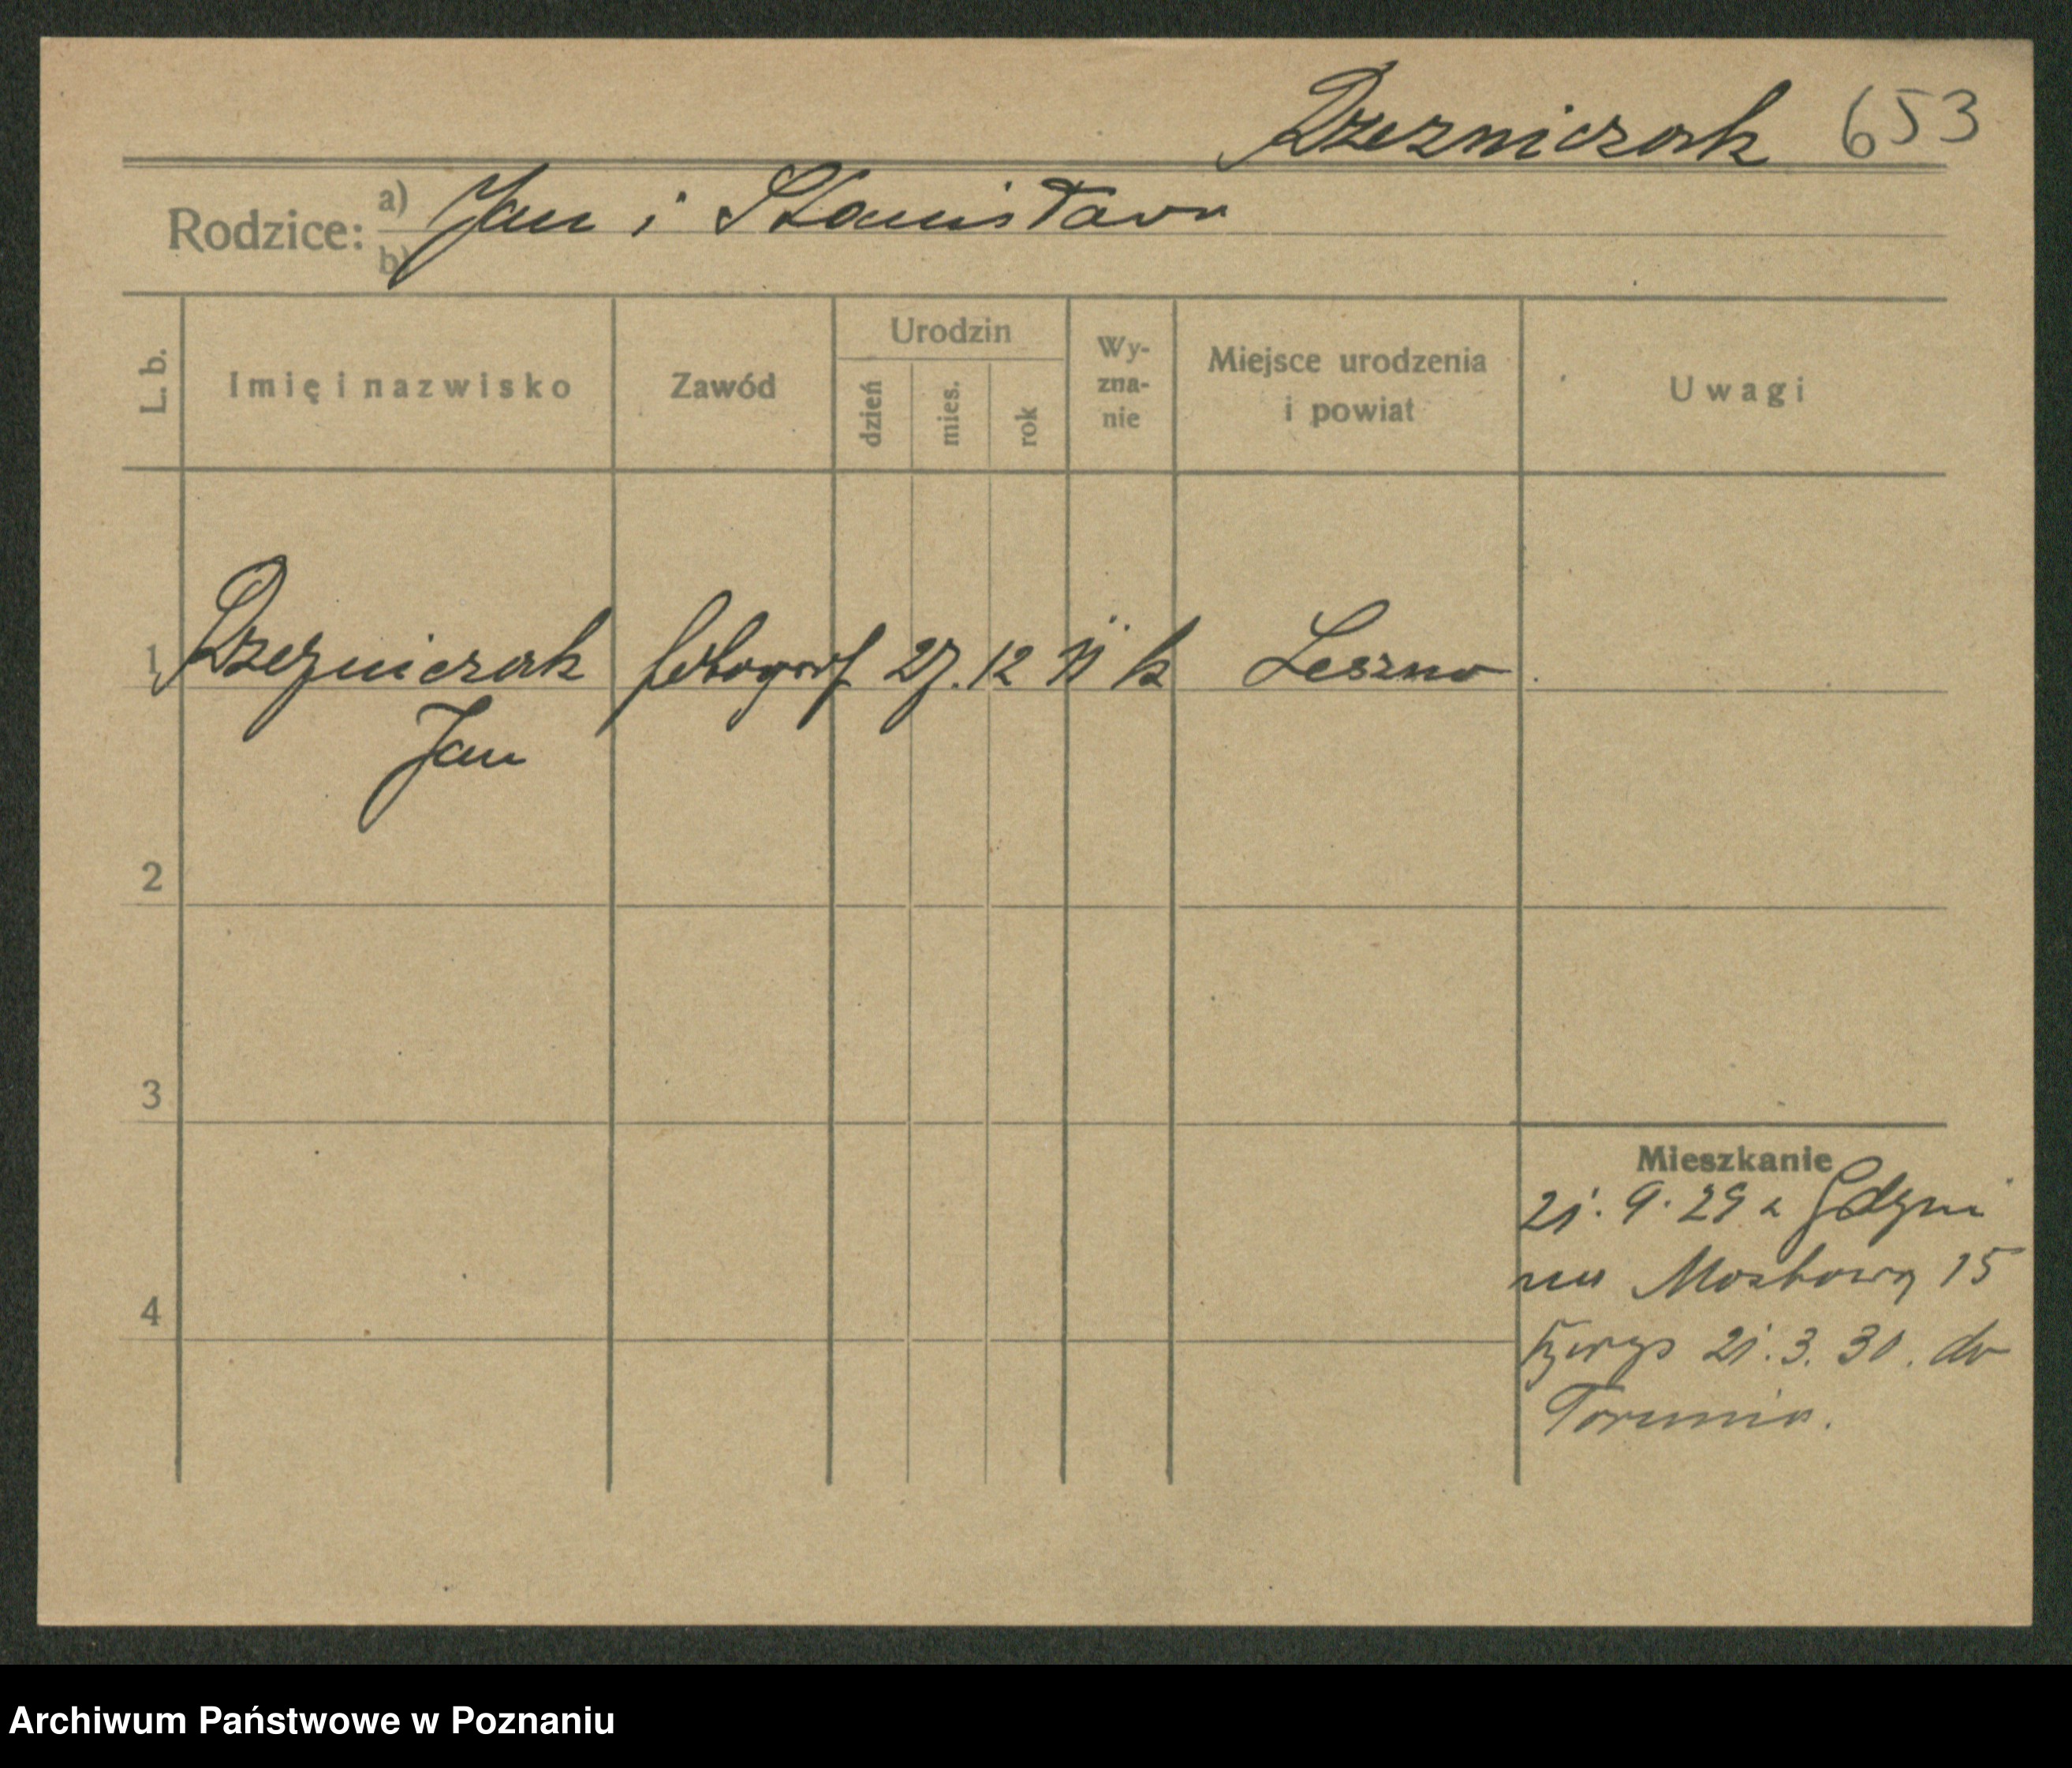 Rzezniczak 653
Rodzice: a) Jan i Stanisława
b)
L. b. Imię i nazwisko Zawód Urodzin dzień mies. rok Wy-zna-nie Miejsce urodzenia i powiat Uwagi
1 Rzezniczak fotograf 27. 12 11 k Leszno
Jan
2
3
4
Mieszkanie
21. 9. 29 z Gdyni
na Mostową 15
21. 3. 30. do
Torunia.
Archiwum Państwowe w Poznaniu